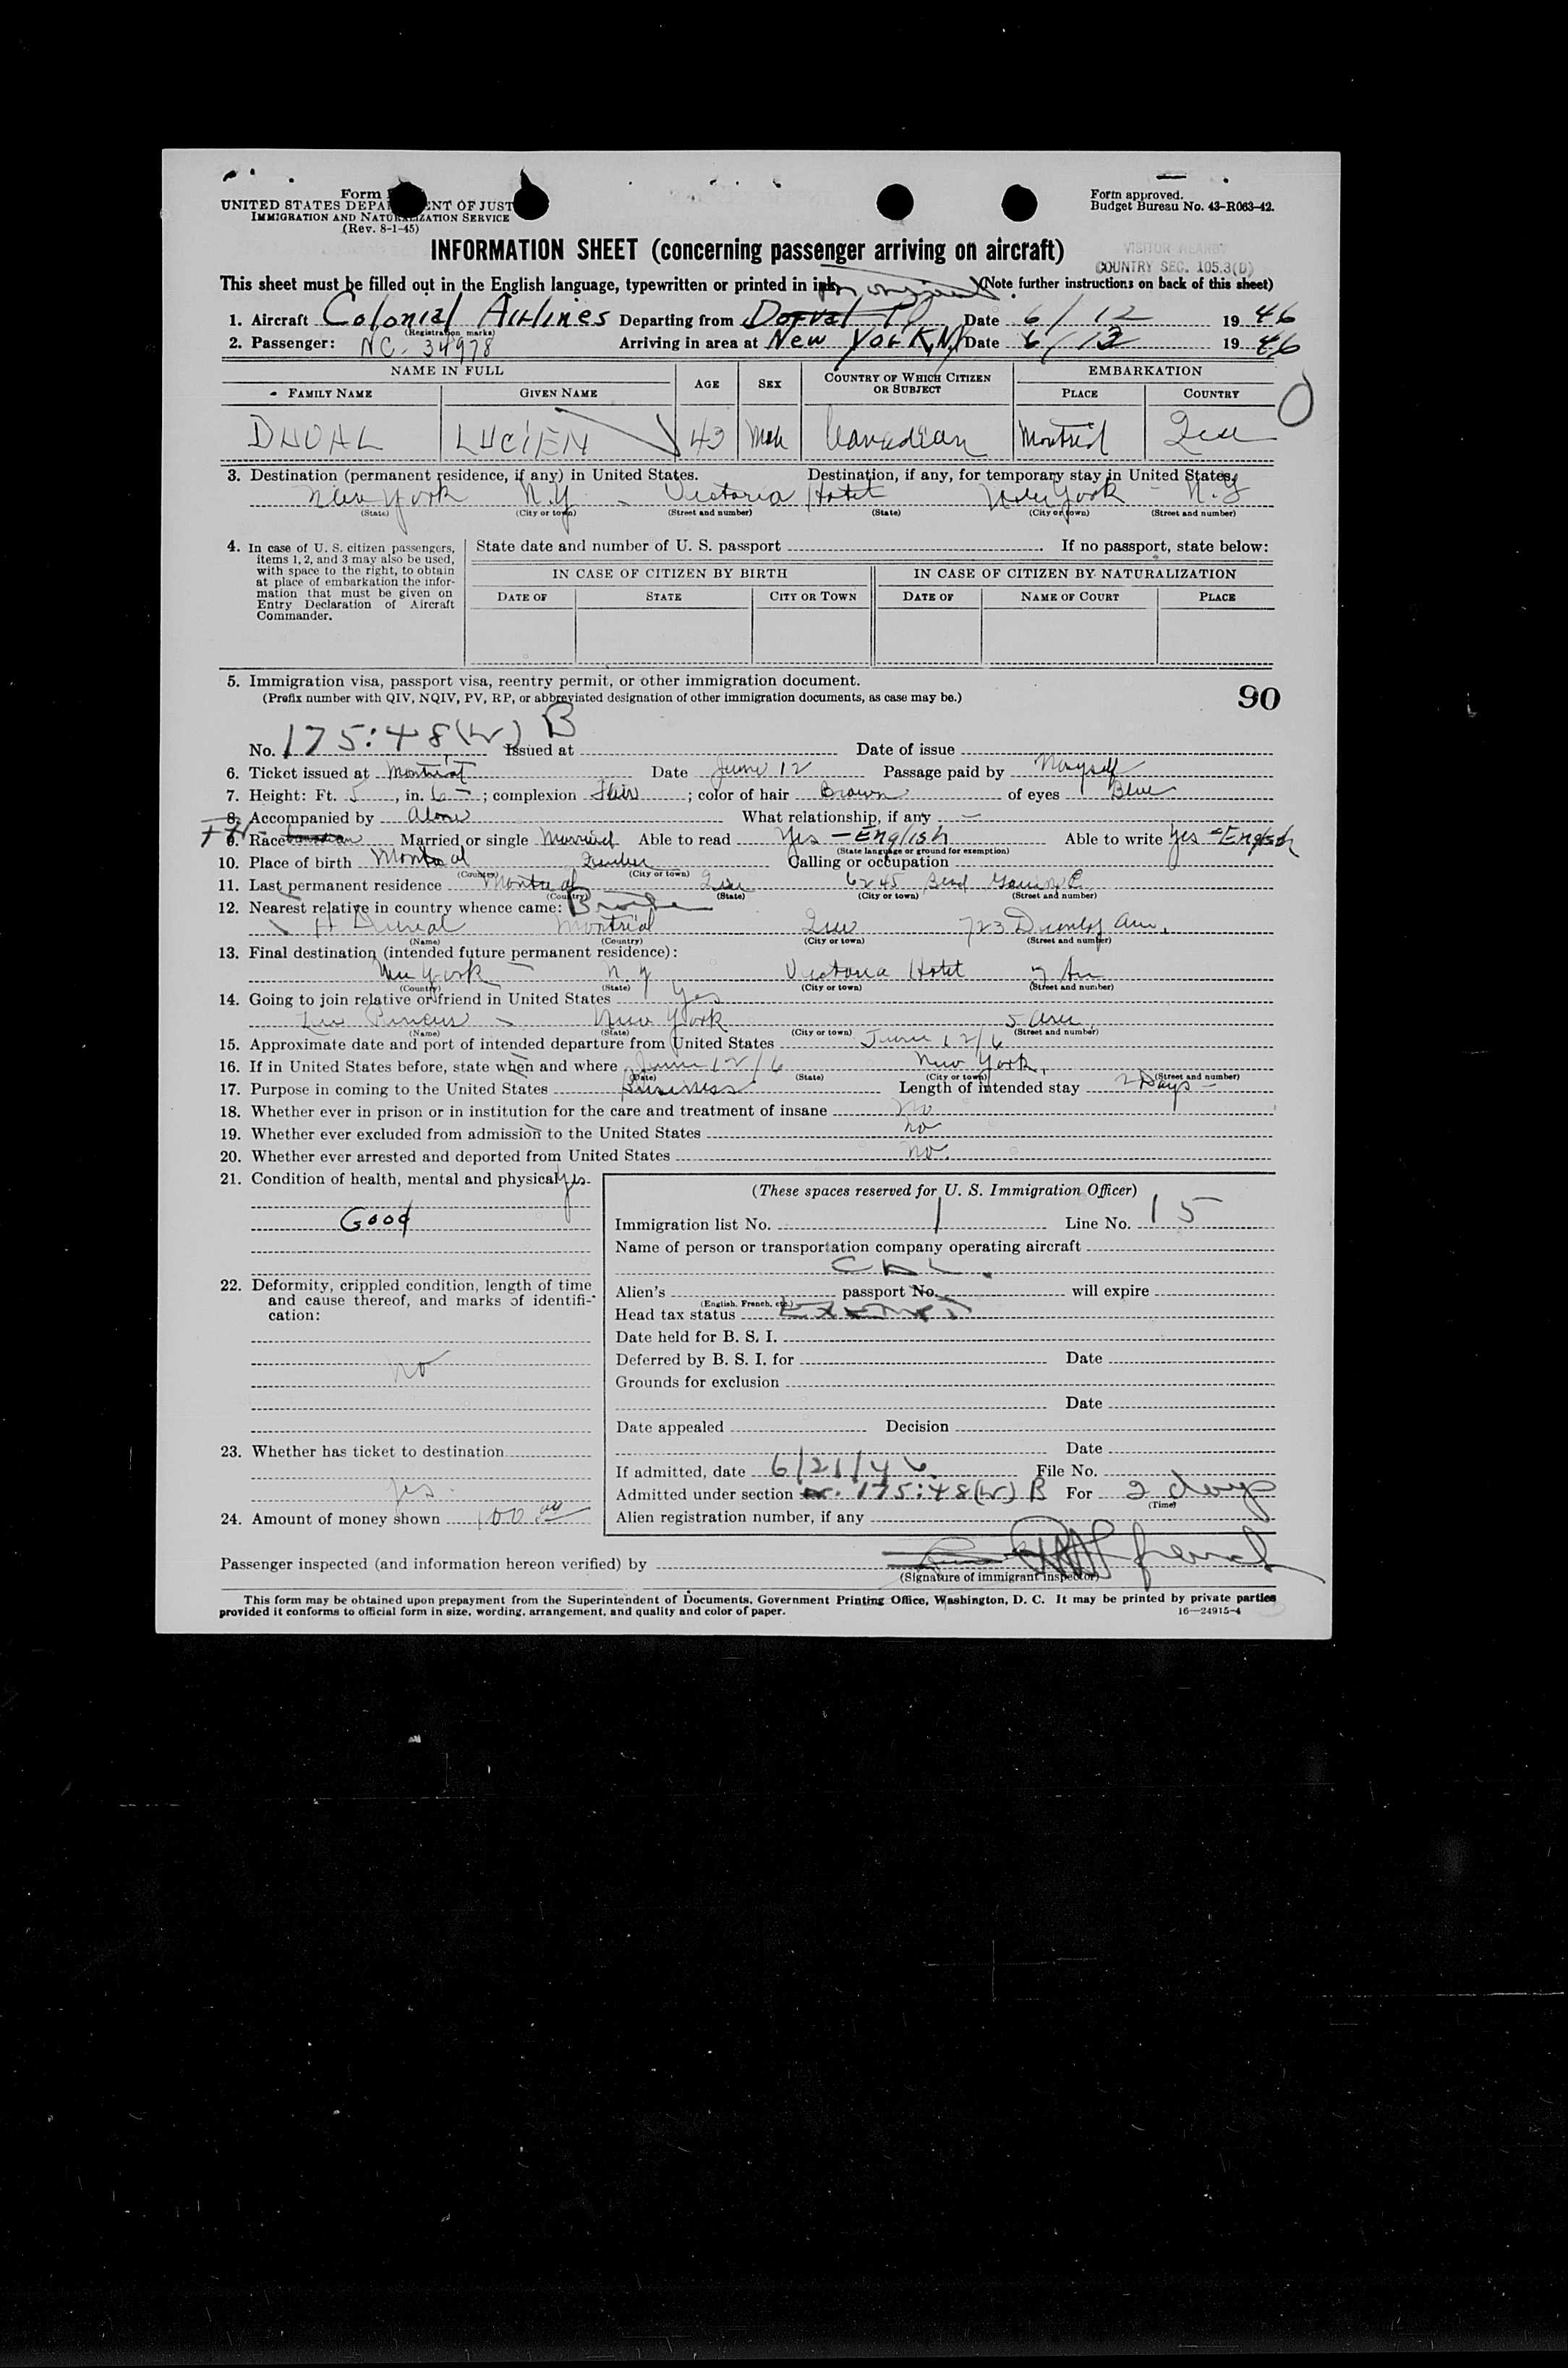 Form
UNITED STATES DEPA ENT OF JUST
IMMIGRATION AND NATURALIZATION SERVICE
(Rev. 8-1-45)
Form approved.
Budget Bureau No. 43-R063-42.
INFORMATION SHEET (concerning passenger arriving on aircraft)
VISITOR NEARBY
COUNTRY SEC. 105.3(D)
This sheet must be filled out in the English language, typewritten or printed in ink. (Note further instructions on back of this sheet)
1. Aircraft Colonial Airlines Departing from Dorval Date 6/12 1946
(Registration marks)
2. Passenger: NC-34978 Arriving in area at New York, N.Y. Date 6/12 1946
NAME IN FULL AGE SEX COUNTRY OF WHICH CITIZEN OR SUBJECT EMBARKATION
FAMILY NAME GIVEN NAME PLACE COUNTRY
DUVAL LUCIEN 43 Male Canadian Montreal Que 0
3. Destination (permanent residence, if any) in United States. Destination, if any, for temporary stay in United States.
New York N.Y - Victoria Hotel New York - N.Y
(State) (City or town) (Street and number) (State) (City or town) (Street and number)
4. In case of U. S. citizen passengers, items 1, 2, and 3 may also be used, with space to the right, to obtain at place of embarkation the information that must be given on Entry Declaration of Aircraft Commander.
State date and number of U. S. passport If no passport, state below:
IN CASE OF CITIZEN BY BIRTH IN CASE OF CITIZEN BY NATURALIZATION
DATE OF STATE CITY OR TOWN DATE OF NAME OF COURT PLACE
5. Immigration visa, passport visa, reentry permit, or other immigration document.
(Prefix number with QIV, NQIV, PV, RP, or abbreviated designation of other immigration documents, as case may be.)
90
No. 175:48(W) B Issued at Date of issue
6. Ticket issued at Montreal Date June 12 Passage paid by Mayself
7. Height: Ft. 5, in. 6 -; complexion Fair; color of hair Brown of eyes Blue
8. Accompanied by Alone What relationship, if any —
9. Race Married or single Married Able to read Yes - English Able to write Yes - English
(State language or ground for exemption)
10. Place of birth Montreal Quebec Calling or occupation
(Country) (City or town)
11. Last permanent residence Montreal Que 6245 Goin E.
(Country) (State) (City or town) (Street and number)
12. Nearest relative in country whence came: Brother
H Duval Montreal Que 723 Ave.
(Name) (Country) (City or town) (Street and number)
13. Final destination (intended future permanent residence):
New York N.Y Victoria Hotel 7 Av
(Country) (State) (City or town) (Street and number)
14. Going to join relative or friend in United States Yes
New York 5 Ave
(Name) (State) (City or town) (Street and number)
15. Approximate date and port of intended departure from United States June 12/6
16. If in United States before, state when and where June 12/6 New York.
(Date) (State) (City or town) (Street and number)
17. Purpose in coming to the United States Business Length of intended stay 2 Days -
18. Whether ever in prison or in institution for the care and treatment of insane no
19. Whether ever excluded from admission to the United States no
20. Whether ever arrested and deported from United States no.
21. Condition of health, mental and physical yes.
Good
22. Deformity, crippled condition, length of time and cause thereof, and marks of identification:
no
23. Whether has ticket to destination
yes.
24. Amount of money shown 100.00
(These spaces reserved for U. S. Immigration Officer)
Immigration list No. 1 Line No. 15
Name of person or transportation company operating aircraft
CAL.
Alien's passport No. will expire
(English, French, etc.)
Head tax status Exempt
Date held for B. S. I.
Deferred by B. S. I. for Date
Grounds for exclusion
Date
Date appealed Decision
Date
If admitted, date 6/21/46 File No.
Admitted under section 175:48(W) B For 2 days
(Time)
Alien registration number, if any
Passenger inspected (and information hereon verified) by
(Signature of immigrant inspector)
This form may be obtained upon prepayment from the Superintendent of Documents, Government Printing Office, Washington, D. C. It may be printed by private parties
provided it conforms to official form in size, wording, arrangement, and quality and color of paper. 16—24915-4